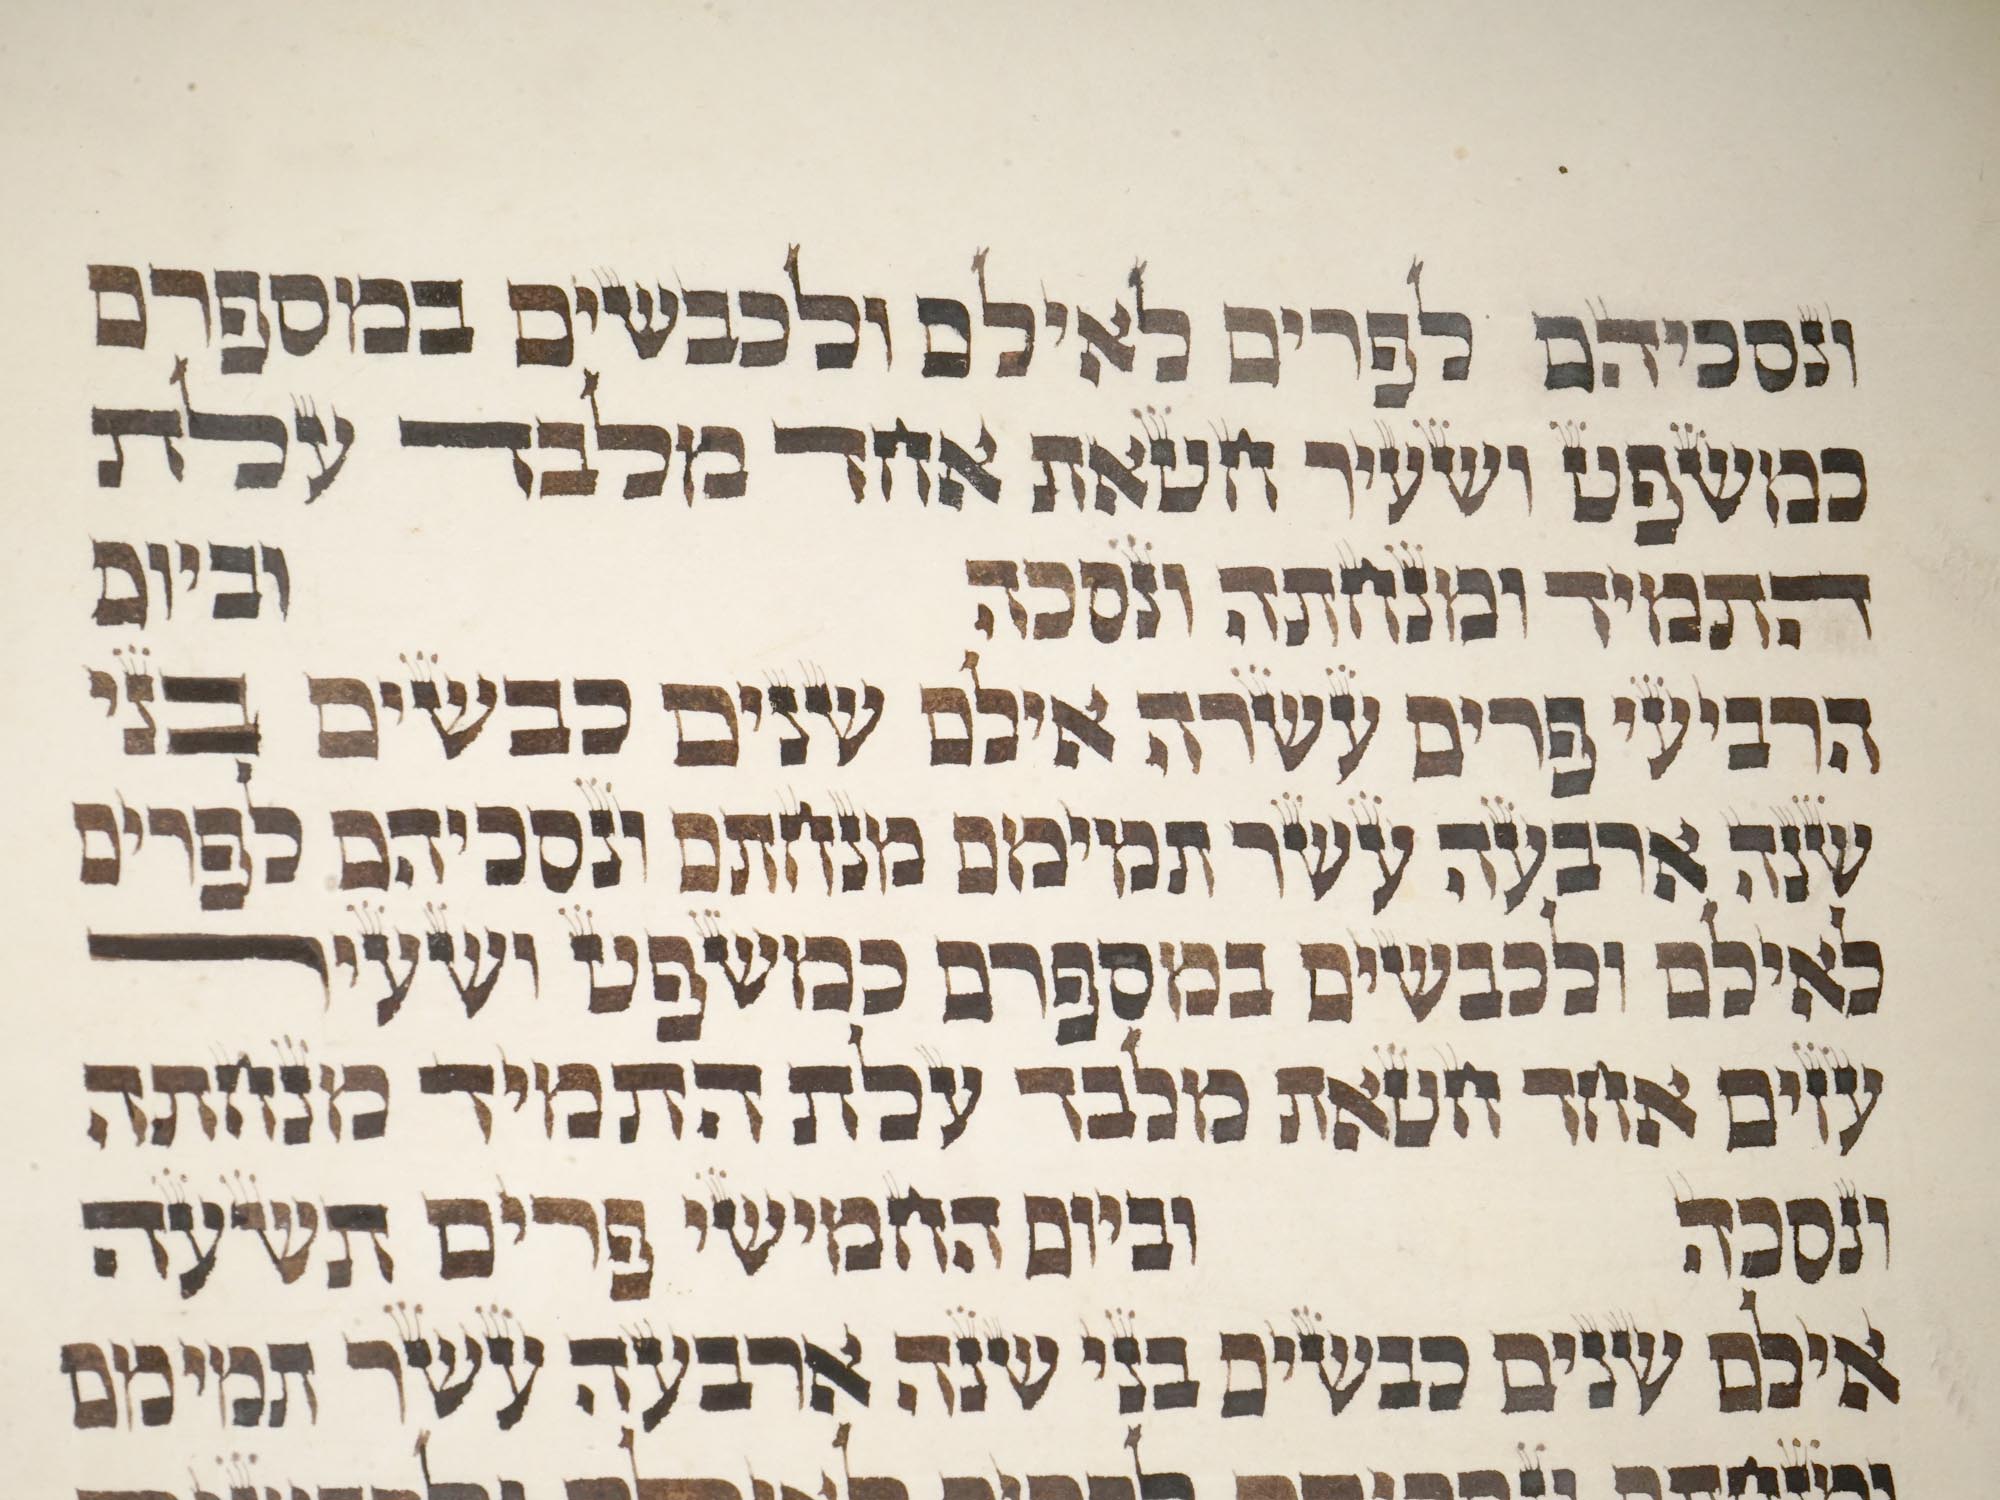 ונסכיהם לפרים לאילם ולכבשים במספרם
כמשפט ושעיר חטאת אחד מלבד עלת
התמיד ומנחתה ונסכה וביום
הרביעי פרים עשרה אילם שנים כבשים בני
שנה ארבעה עשר תמימם מנחתם ונסכיהם לפרים
לאילם ולכבשים במספרם כמשפט ושעיר
עזים אחד חטאת מלבד עלת התמיד מנחתה
ונסכה וביום החמישי פרים תשעה
אילם שנים כבשים בני שנה ארבעה עשר תמימם